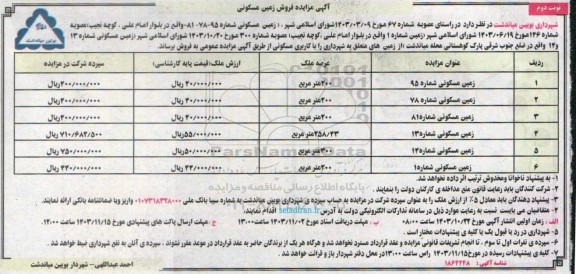 نوبت دوم
آگهی مزایده فروش زمین مسکونی
شهرداری بوبین میاندشت در نظر دارد در راستای مصوبه شماره ۶۷ مورخ ۱۴۰۳/۰۳/۰۹ شورای اسلامی شهر، (زمین شماره ۹۵-۷۸-۸۱ واقع در بلوار امام علی، کوچه نجیب) مصوبه
شماره ۱۴۶ مورخ ۱۴۰۳/۰۶/۱۹ شورای اسلامی شهر (زمین شماره ۱ واقع در بلوار امام علی، کوچه نجیب) مصوبه شماره ۳۰۰ مورخ ۱۴۰۳/۱۰/۲۰ شورای اسلامی شهر (زمین مسکونی شماره ۱۳
و۱۴ واقع در ضلع جنوب شرقی پارک کوهستانی محله میاندشت) از زمین های متعلق به شهرداری را با کاربری مسکونی از طریق آگهی مزایده عمومی به فروش برساند.
ردیف عنوان مزایده عرصه ملک ارزش ملک(قیمت پایه کارشناسی) سپرده شرکت در مزایده
۱ زمین مسکونی شماره ۹۵ ۲۰۰متر مربع ۴۰/۰۰۰/۰۰۰ریال ۴۰۰/۰۰۰/۰۰۰ریال
۲ زمین مسکونی شماره ۷۸ ۲۰۰متر مربع ۴۰/۰۰۰/۰۰۰ریال ۴۰۰/۰۰۰/۰۰۰ریال
۳ زمین مسکونی شماره۸۱ ۲۰۰متر مربع ۴۰/۰۰۰/۰۰۰ریال ۴۰۰/۰۰۰/۰۰۰ریال
۴ زمین مسکونی شماره۱۳ ۲۵۸/۴۳متر مربع ۵۵/۰۰۰/۰۰۰ریال ۷۱۰/۶۸۲/۵۰۰ریال
۵ زمین مسکونی شماره۱۴ ۳۰۰متر مربع ۵۰/۰۰۰/۰۰۰ریال ۷۵۰/۰۰۰/۰۰۰ریال
۶ زمین مسکونی شماره۱ ۲۰۰متر مربع ۴۴/۰۰۰/۰۰۰ریال ۴۴۰/۰۰۰/۰۰۰ریال
۱- به پیشنهاد ناخوانا ومخدوش ترتیب اثر داده نخواهد شد.
۲- شرکت کنندگان باید رعایت قانون منع مداخله ی کارکنان دولت را بنمایند.
۳- پیشنهاد دهندگان باید معادل ۵٪ از ارزش ملک را به عنوان سپرده شرکت در مزایده به حساب سپرده ی شهرداری بوبین میاندشت به شماره سیبا بانک ملی ۰۱۰۷۳۱۸۳۲۸۰۰۰ واریز ویا ضمانتنامه بانکی ارائه نمایند.
۴- متقاضیان می بایست نسبت به رعایت موارد ذیل در سامانه تدارکات الکترونیکی دولت به آدرس setadiran.ir اقدام نمایند.
زمان اولین انتشار آگهی مورخ ۱۴۰۳/۱۰/۲۴ ساعت ۰۸:۰۰ ب- مهلت دریافت اسناد مورخ ۱۴۰۳/۱۱/۰۲ ساعت ۱۳:۰۰ ج- مهلت ارسال پاکت های پیشنهادی مورخ ۱۴۰۳/۱۱/۱۵ ساعت ۱۲:۰۰
۵- شهرداری در رد یا قبول یک یا کلیه ی پیشنهادات مختار است.
۶- سپرده ی نفرات اول تا سوم، تا انجام تشریفات قانونی مزایده و عقد قرارداد مسترد نخواهد شد و هرگاه هر یک از برندگان حاضر به عقد قرارداد در موعد مقرر نشوند، سپرده ی آنان به نفع شهرداری ضبط خواهد شد.
۷- کلیه ی پیشنهادات رسیده در مورخ۱۴۰۳/۱۱/۱۵ راس ساعت ۱۳:۰۰در محل دفتر شهردار باز و قرائت خواهد شد.
شناسه آگهی: ۱۸۶۴۴۴۸
احمد عبداللهی- شهردار بوبین میاندشت